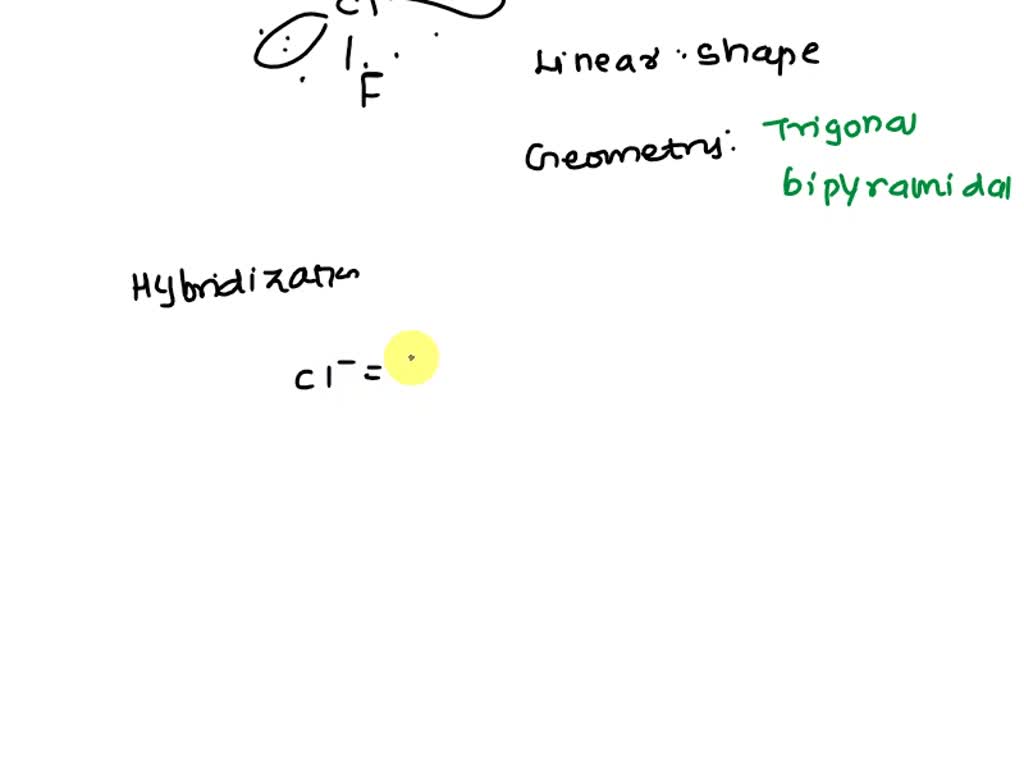 Cl
F
Linear : shape
Geometry: Trigonal
bipyramidal
Hybridization
Cl⁻ =